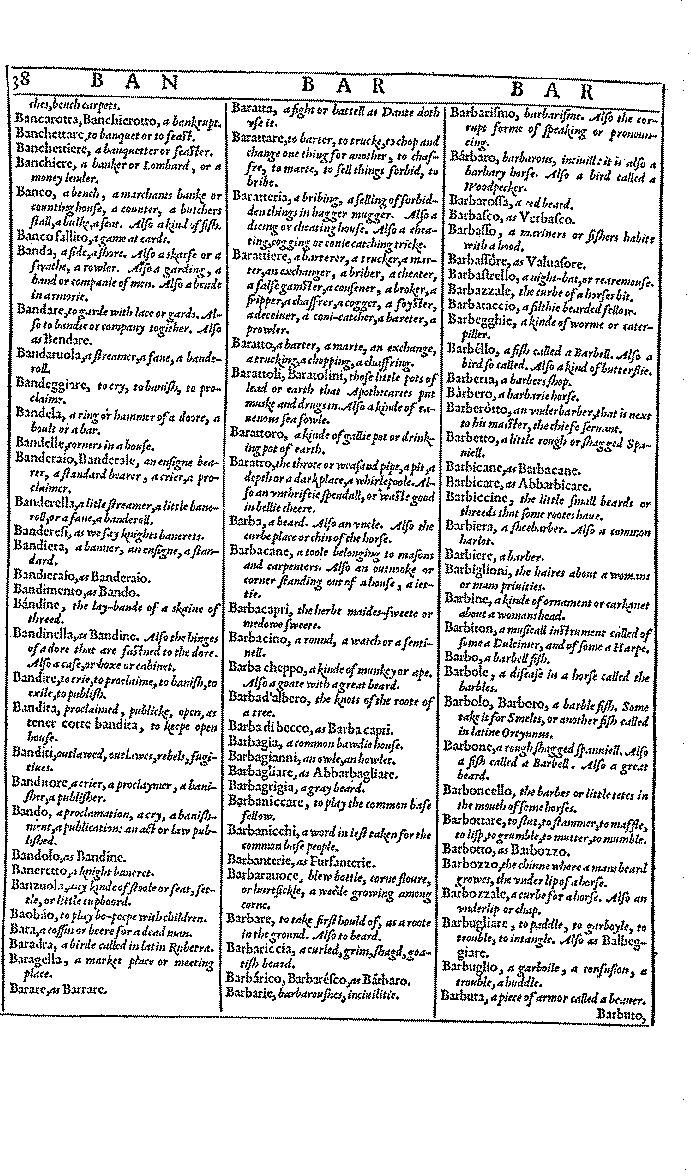 38 BAN BAR BAR
ches, bench carpets.
Bancarotta, Banchierotto, a bankrupt.
Banchettare, to banquet or to feast.
Banchettiere, a banquetter or feaster.
Banchiere, a banker or Lombard, or a
money lender.
Banco, a bench, a marchants banke or
counting house, a counter, a butchers
stall, a bulke, a seat. Also a kind of fish.
Banco fallito, a game at cards.
Banda, a side, a shore. Also a skarfe or a
swathe, a rowler. Also a garding, a
band or companie of men. Also a bende
in armorie.
Bandare, to garde with lace or gards. Al-
so to bandie or company together. Also
as Bendare.
Bandaruola, a streamer, a fane, a bande-
roll.
Bandeggiare, to cry, to banish, to pro-
claime.
Bandela, a ring or hammer of a doore, a
boult or a bar.
Bandelle, corners in a house.
Banderaio, Banderale, an ensigne bea-
rer, a standard bearer, a crier, a pro-
claimer.
Banderella, a litle streamer, a little bane-
roll, or a fane, a banderoll.
Banderesi, as we say knights banerets.
Bandiera, a banner, an ensigne, a stan-
dard.
Bandieraio, as Banderaio.
Bandimento, as Bando.
Bándine, the lay-bande of a skaine of
threed.
Bandinella, as Bandine. Also the hinges
of a dore that are fastned to the dore.
Also a case, or boxe or cabinet.
Bandire, to crie, to proclaime, to banish, to
exile, to publish.
Bandita, proclaimed, publicke, open, as
tenere corte bandita, to keepe open
house.
Banditi, outlawed, outlawes, rebels, fugi-
tiues.
Banditore, a crier, a proclaymer, a bani-
sher, a publisher.
Bando, a proclamation, a cry, a banish-
ment, a publication: an act or law pub-
lished.
Bandolo, as Bandine.
Baneretto, a knight baneret.
Banzuola, any kinde of stoole or seat, set-
tle, or little cupboord.
Baobáo, to play bo-peepe with children.
Bara, a coffin or beere for a dead man.
Baradra, a birde called in latin Ruberra.
Baragella, a market place or meeting
place.
Barare, as Barrare.
Baratta, a fight or battell as Dante doth
vse it.
Barattare, to barter, to trucke, to chop and
change one thing for another, to chaf-
fre, to marte, to sell things forbid, to
bribe.
Baratteria, a bribing, a selling of forbid-
den things in hugger mugger. Also a
dicing or cheating house. Also a chea-
ting, cogging or conie catching tricke.
Barattiere, a barterer, a trucker, a mar-
ter, an exchanger, a briber, a cheater,
a false gamster, a cousener, a broker, a
fripper, a chaffrer, a cogger, a foyster,
a deceiuer, a coni-catcher, a bareter, a
prowler.
Baratto, a barter, a marte, an exchange,
a trucking, a chopping, a chaffring.
Barattoli, Baratolini, those little pots of
lead or earth that Apothecaries put
muske and drugs in. Also a kinde of ra-
uenous sea fowle.
Barattoro, a kinde of gallie pot or drink-
ing pot of earth.
Baratro, the throte or weasand pipe, a pit, a
depth or a dark place, a whirlepoole. Al-
so an vnthriftie spendall, or waste good
in bellie cheere.
Barba, a beard. Also an vncle. Also the
curbe place or chin of the horse.
Barbacane, a toole belonging to masons
and carpenters. Also an outnoke or
corner standing out of a house, a iet-
tie.
Barbacapri, the herbe maides-sweete or
medowsweete.
Barbacino, a round, a watch or a senti-
nell.
Barba cheppo, a kinde of munkey or ape.
Also a goate with a great beard.
Barbad'albero, the knots of the roote of
a tree.
Barba di becco, as Barba capri.
Barbagia, a common bawdie house.
Barbagianni, an owle, an howler.
Barbagliare, as Abbarbagliare.
Barbagrigia, a gray beard.
Barbaniccare, to play the common base
fellow.
Barbanicchi, a word in iest taken for the
common base people.
Barbanterie, as Furfanterie.
Barbarauoce, blew bottle, corne floure,
or hurtsickle, a weede growing among
corne.
Barbare, to take first hould of, as a roote
in the ground. Also to beard.
Barbariccia, a curled, grim, shagd, goa-
tish beard.
Barbárico, Barbarésco, as Bárbaro.
Barbarie, barbarousnes, inciuilitie.
Barbarismo, barbarisme. Also the cor-
rupt forme of speaking or pronoun-
cing.
Bárbaro, barbarous, inciuill: it is also a
barbary horse. Also a bird called a
Woodpecker.
Barbarossa, a red beard.
Barbasco, as Verbasco.
Barbasso, a mariners or fishers habite
with a hood.
Barbassóre, as Valuasore.
Barbastrello, a night-bat, or rearemouse.
Barbazzale, the curbe of a horses bit.
Barbataccio, a filthie bearded fellow.
Barbegghie, a kinde of worme or cater-
piller.
Barbéllo, a fish called a Barbell. Also a
bird so called. Also a kind of butterflie.
Barberia, a barbers shop.
Bárbero, a barbarie horse.
Barberótto, an vnder barber, that is next
to his master, the chiefe seruant.
Barbetto, a little rough or shagged Spa-
niell.
Barbicane, as Barbacane.
Barbicare, as Abbarbicare.
Barbiccine, the little small beards or
threeds that some rootes haue.
Barbiera, a sheebarber. Also a common
harlot.
Barbiere, a barber.
Barbiglioni, the haires about a womans
or mans priuities.
Barbine, a kinde of ornament or carkanet
about a womans head.
Barbiton, a musicall instrument called of
some a Dulcimer, and of some a Harpe.
Barbo, a barbell fish.
Barbole, a disease in a horse called the
barbles.
Barbolo, Barboro, a barble fish. Some
take it for Smelts, or another fish called
in latine Orcynnus.
Barbone, a rough shagged spanniell. Also
a fish called a Barbell. Also a great
beard.
Barboncello, the barber or little tetes in
the mouth of some horses.
Barbottare, to stut, to stammer, to maffle,
to lisp, to grumble, to mutter, to mumble.
Barbotto, as Barbozzo.
Barbozzo, the chinne where a mans beard
growes, the vnder lip of a horse.
Barbozzale, a curbe for a horse. Also an
vnderlip or chap.
Barbugliare, to puddle, to garboyle, to
trouble, to intangle. Also as Balbeg-
giare.
Barbuglio, a garboile, a confusion, a
trouble, a huddle.
Barbuta, a piece of armor called a beauer.
Barbuto,